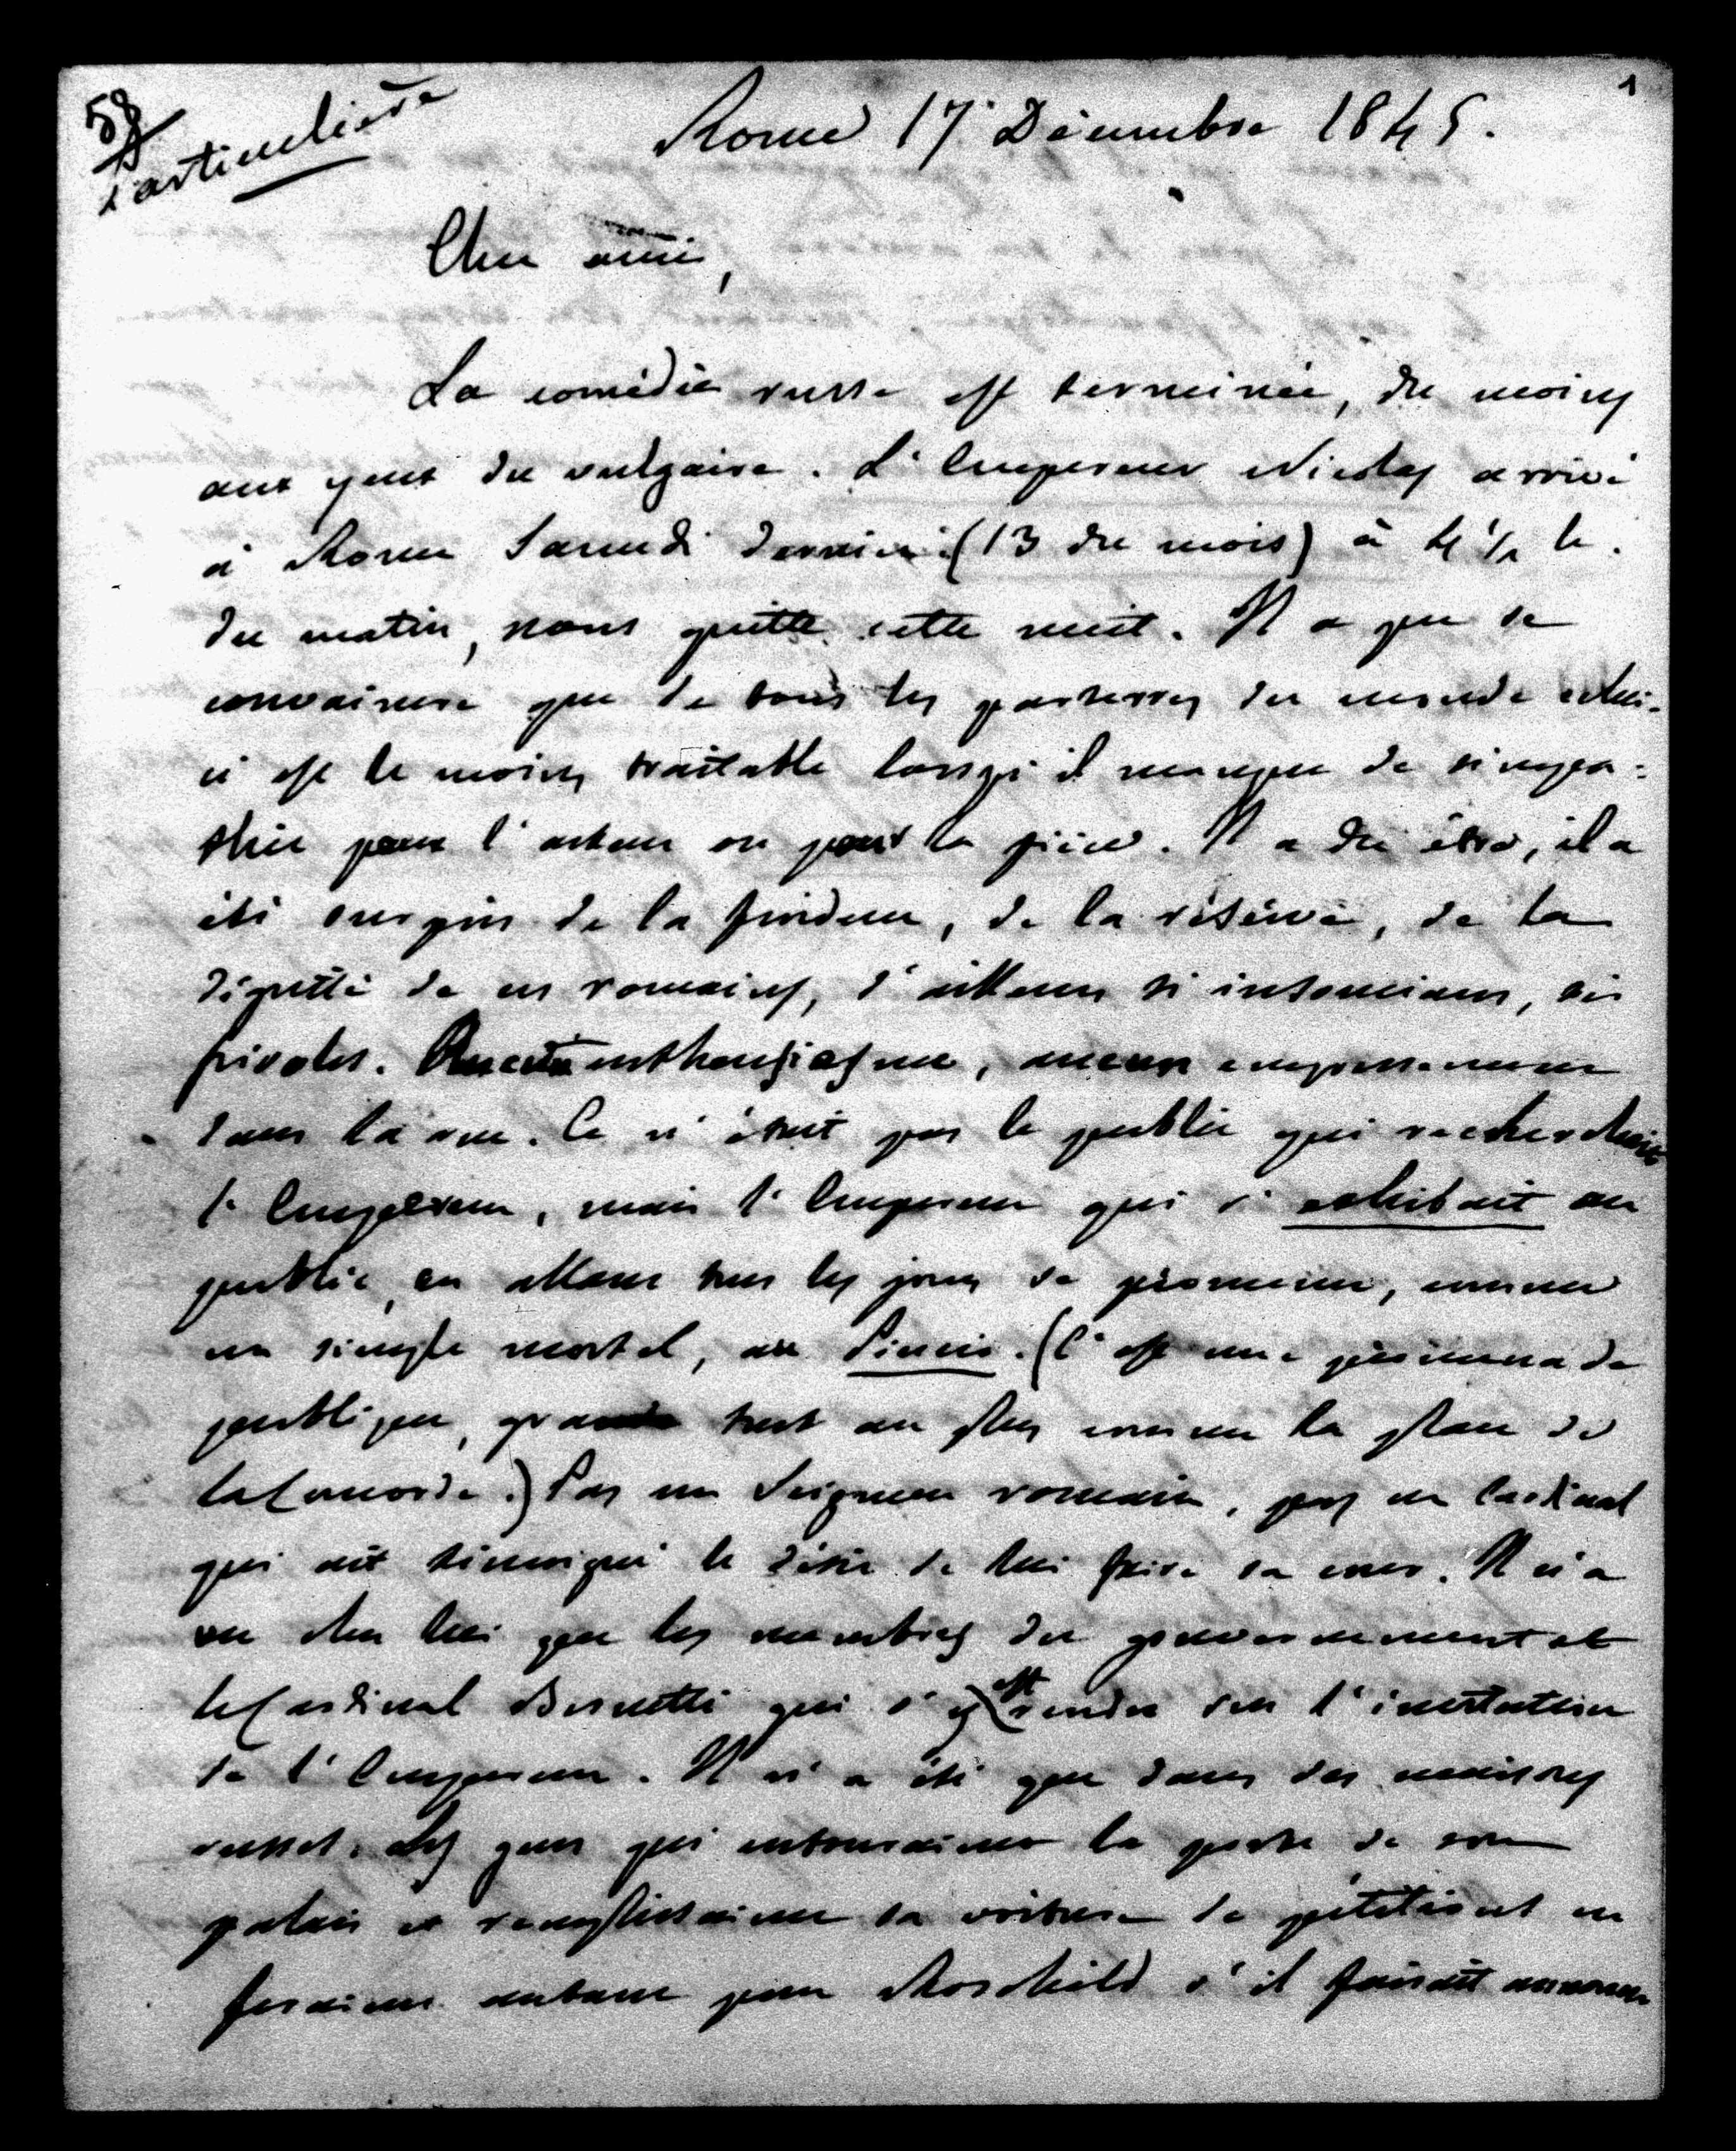 58
Particulière
1
Rome 17 Décembre 1845.
Cher ami,
La comédie russe est terminée, du moins
aux yeux du vulgaire. L'Empereur Nicolas arrivé
à Rome Samedi dernier (13 du mois) à 4 ½ h.
du matin, nous quitte cette nuit. Il a pu se
convaincre que de tous les parterres du monde celui-
ci est le moins traitable lorsqu'il manque de sympa=
thie pour l'acteur ou pour la pièce. Il a dû être, il a
été surpris de la froideur, de la réserve, de la
dignité de ces romains, d'ailleurs si insouciants, si
frivoles. Aucun enthousiasme, aucun empressement
dans la rue. Ce n'était pas le public qui recherchait
l'Empereur, mais l'Empereur qui s'exhibait au
public, en allant tous les jours se promener, comme
un simple mortel, au Pincio. (C'est une promenade
publique, grande tout au plus comme la place de
la Concorde.) Pas un Seigneur romain, pas un Cardinal
qui ait témoigné le désir de lui faire sa cour. Il n'a
vu chez lui que les membres du gouvernement et
le Cardinal Bernetti qui s'y est rendu sur l'invitation
de l'Empereur. Il n'a été que dans des maisons
russes. Les gens qui entouraient la porte de son
palais et remplissaient sa voiture de pétitions en
feraient autant pour Roschild s'il faisait annoncer